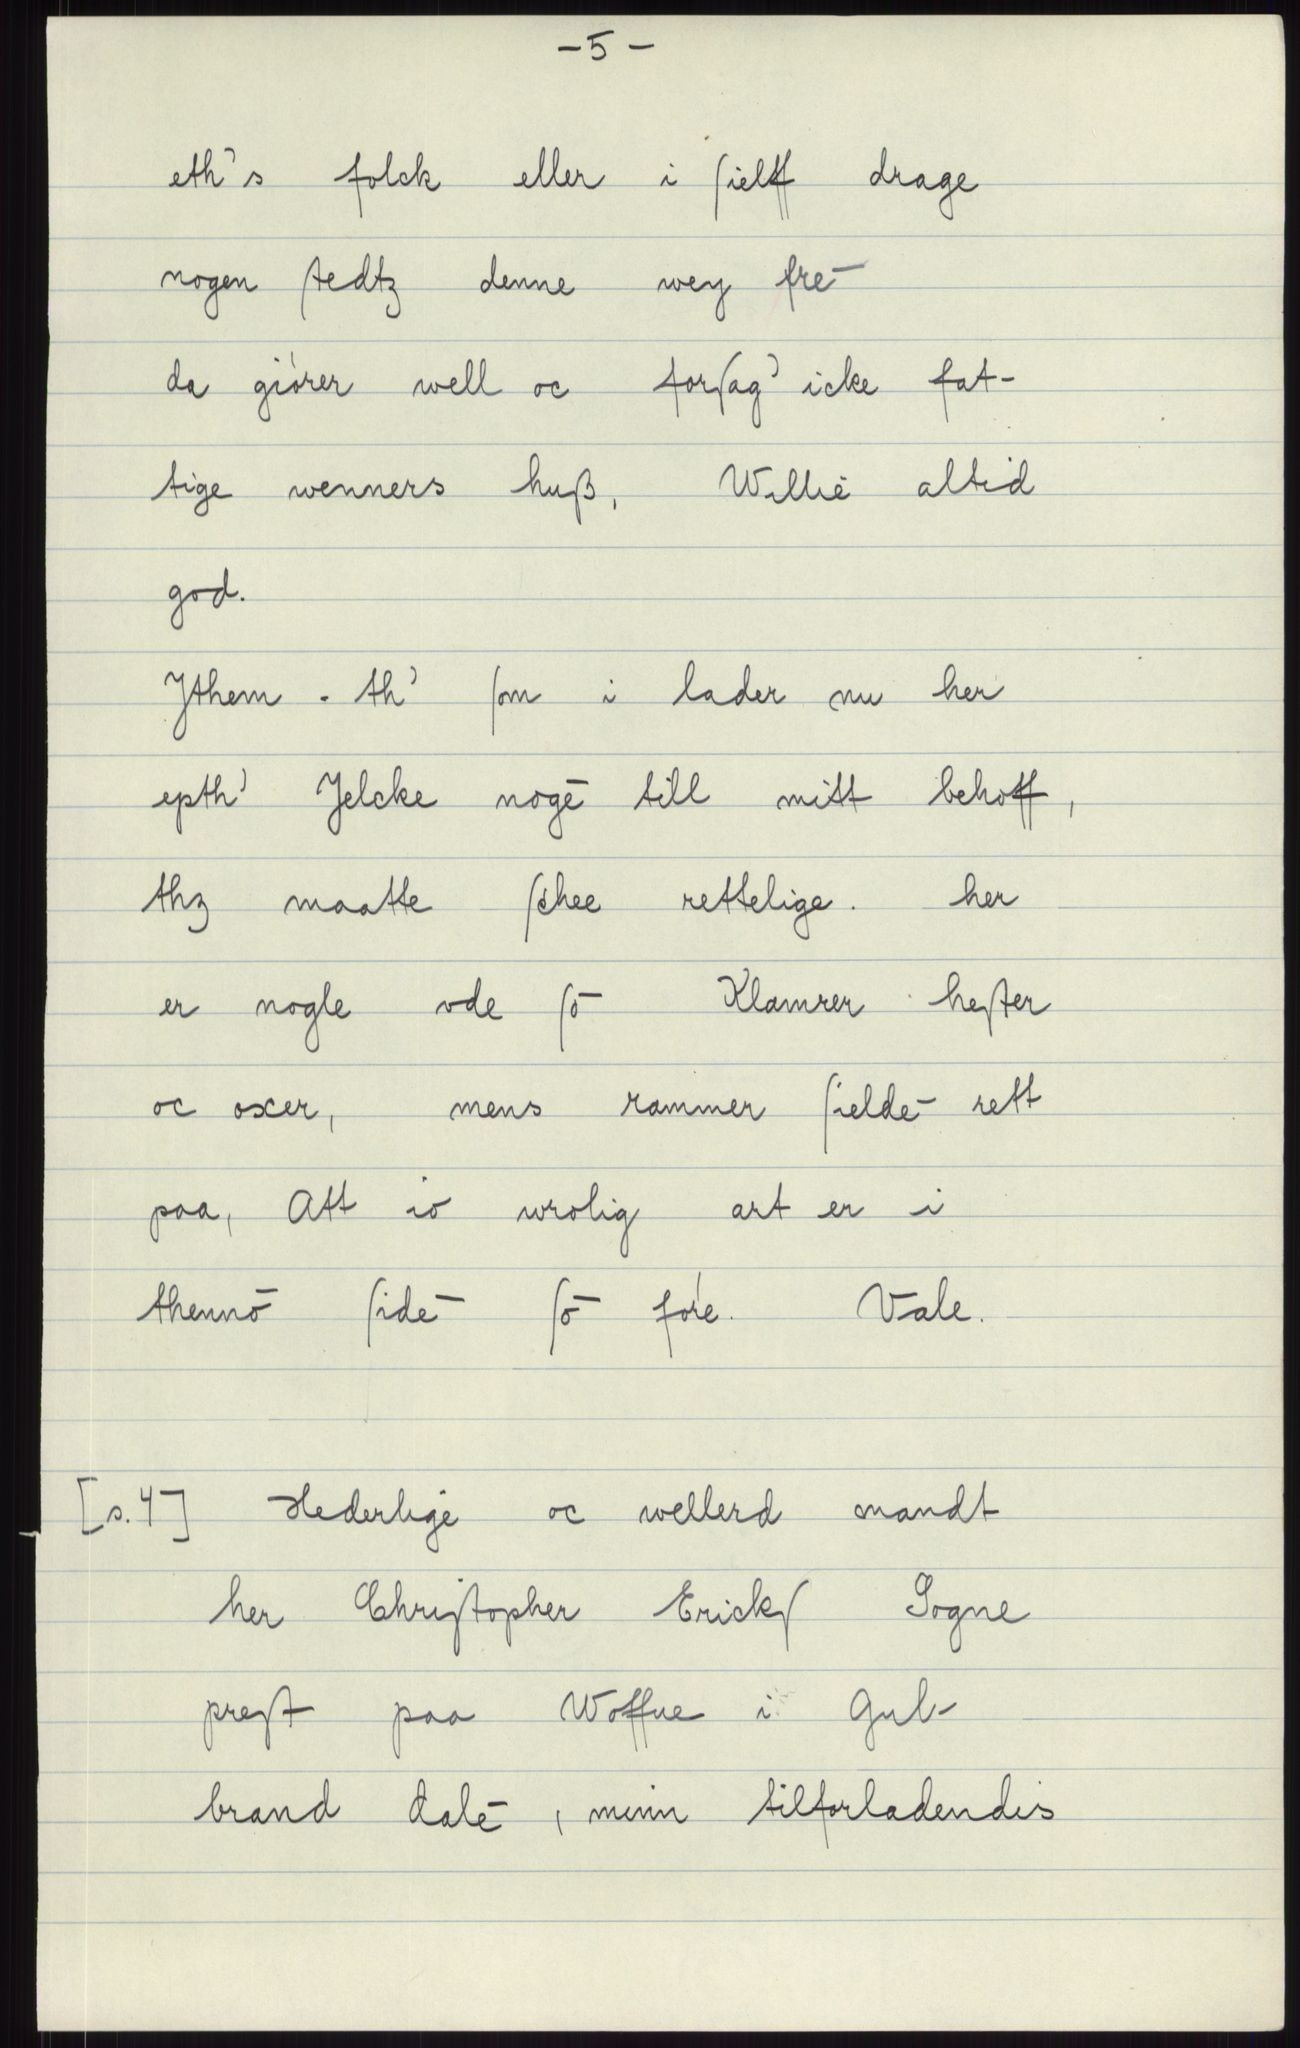 - 5 -
eth's folck eller i ſielff drage
nogen ſtedtz denne wey fre-
da giórer well oc forſag' icke fat-
tige wenners huß, Willie altid
god.
Jthem . th' ſom i lader nu her
epth' Jelcke nogē till mitt behoff,
thz maatte ſchee rettelige. her
er nogle vde ſō Klamrer heſter
oc oxer, mens rammer ſieldē rett
paa, Att io wrolig art er i
thennō ſidē ſō fóre. Vale.
[s. 4] Hederlige oc wellerd mandt
her Chriſtopher Erickſ Sogne
preſt paa Woffue i Gul-
brand dalē, minn tilforladendis